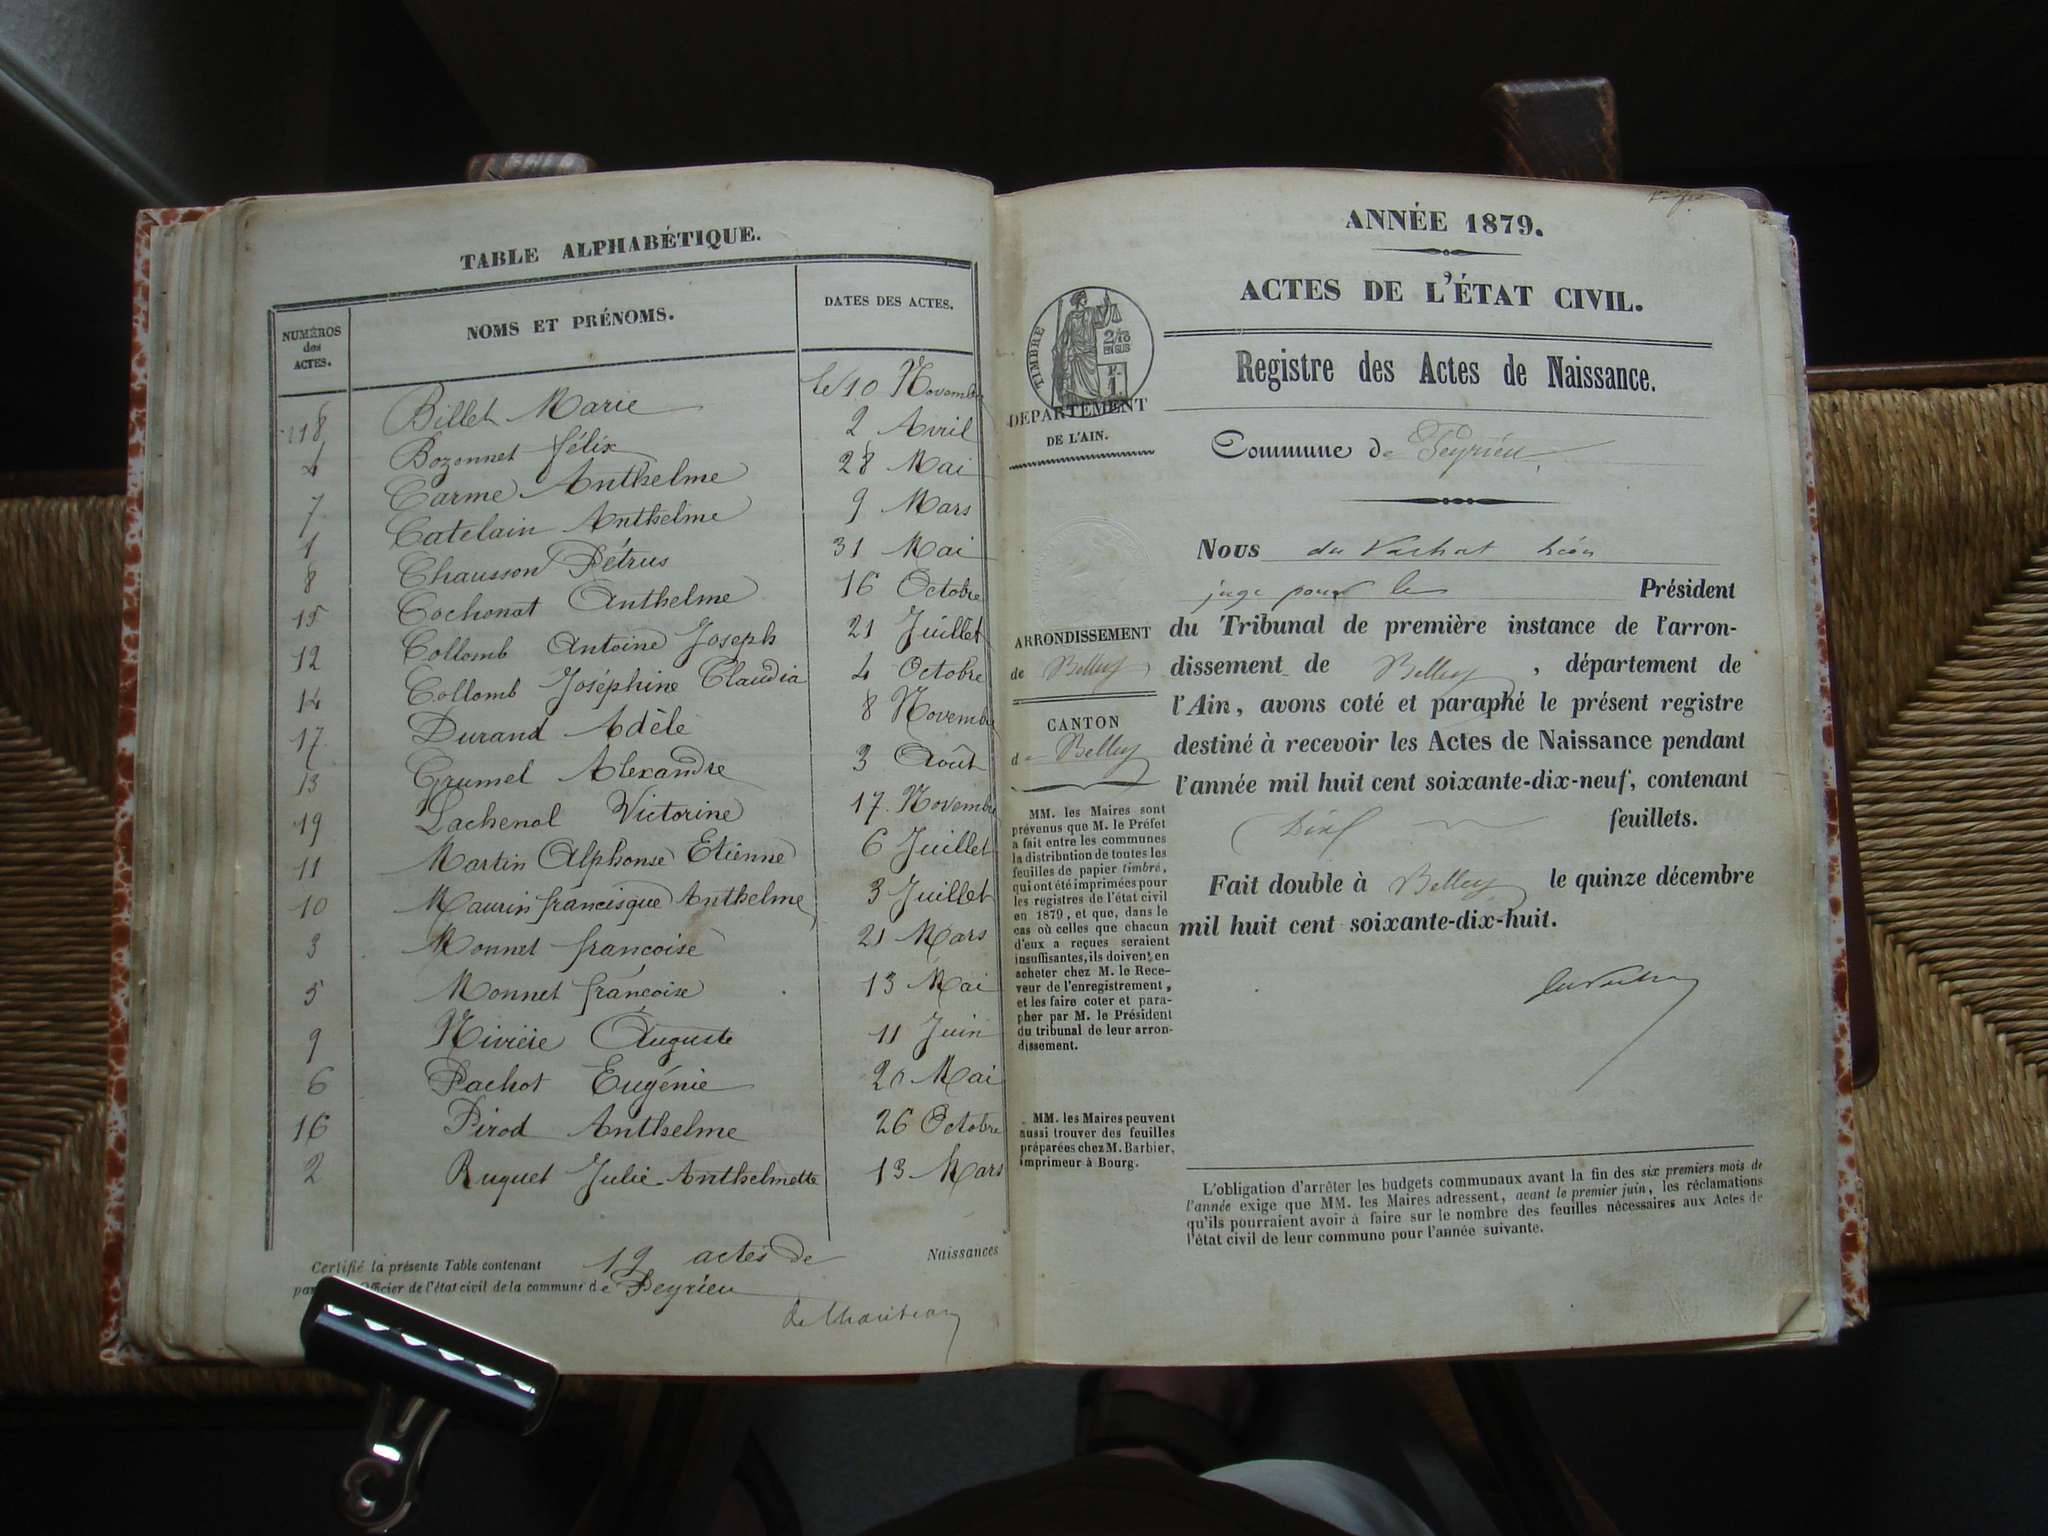 TABLE ALPHABÉTIQUE.
NUMÉROS des ACTES.
NOMS ET PRÉNOMS.
DATES DES ACTES.
18 Billet Marie le 10 Novembre
4 Bozonnet félix 2 Avril
7 Carme Anthelme 28 Mai
1 Catelain Anthelme 9 Mars
8 Chausson Pétrus 31 Mai
15 Cochonat Anthelme 16 Octobre
12 Collomb Antoine Joseph 21 Juillet
14 Collomb Joséphine Claudia 4 Octobre
17 Durand Adèle 8 Novembre
13 Grumel Alexandre 3 Août
19 Lachenal Victorine 17 Novembre
11 Martin Alphonse Etienne 6 Juillet
10 Maurin francisque Anthelme 3 Juillet
3 Monnet francoise 21 Mars
5 Monnet francoise 13 Mai
9 Nivière Auguste 11 Juin
6 Pachot Eugénie 20 Mai
16 Pirod Anthelme 26 Octobre
2 Ruguet Julie Anthelmette 13 Mars
Certifié la présente Table contenant 19 actes de Naissances
par Officier de l'état civil de la commune de Peyrieu
ANNÉE 1879.
ACTES DE L'ÉTAT CIVIL.
Registre des Actes de Naissance.
TIMBRE
2/10
EN SUS
F.
1
DÉPARTEMENT
DE L'AIN.
Commune de Peyrieu
Nous du Vachat Léon
juge pour le Président
du Tribunal de première instance de l'arron-
dissement de Belley, département de
l'Ain, avons coté et paraphé le présent registre
destiné à recevoir les Actes de Naissance pendant
l'année mil huit cent soixante-dix-neuf, contenant
feuillets.
Fait double à Belley le quinze décembre
mil huit cent soixante-dix-huit.
ARRONDISSEMENT
de Belley
CANTON
de Belley
MM. les Maires sont
prévenus que M. le Préfet
a fait entre les communes
la distribution de toutes les
feuilles de papier timbré,
qui ont été imprimées pour
les registres de l'état civil
en 1879, et que, dans le
cas où celles que chacun
d'eux a reçues seraient
insuffisantes, ils doivent en
acheter chez M. le Rece-
veur de l'enregistrement,
et les faire coter et para-
pher par M. le Président
du tribunal de leur arron-
dissement.
MM. les Maires peuvent
aussi trouver des feuilles
préparées chez M. Barbier,
imprimeur à Bourg.
L'obligation d'arrêter les budgets communaux avant la fin des six premiers mois de
l'année exige que MM. les Maires adressent, avant le premier juin, les réclamations
qu'ils pourraient avoir à faire sur le nombre des feuilles nécessaires aux Actes de
l'état civil de leur commune pour l'année suivante.